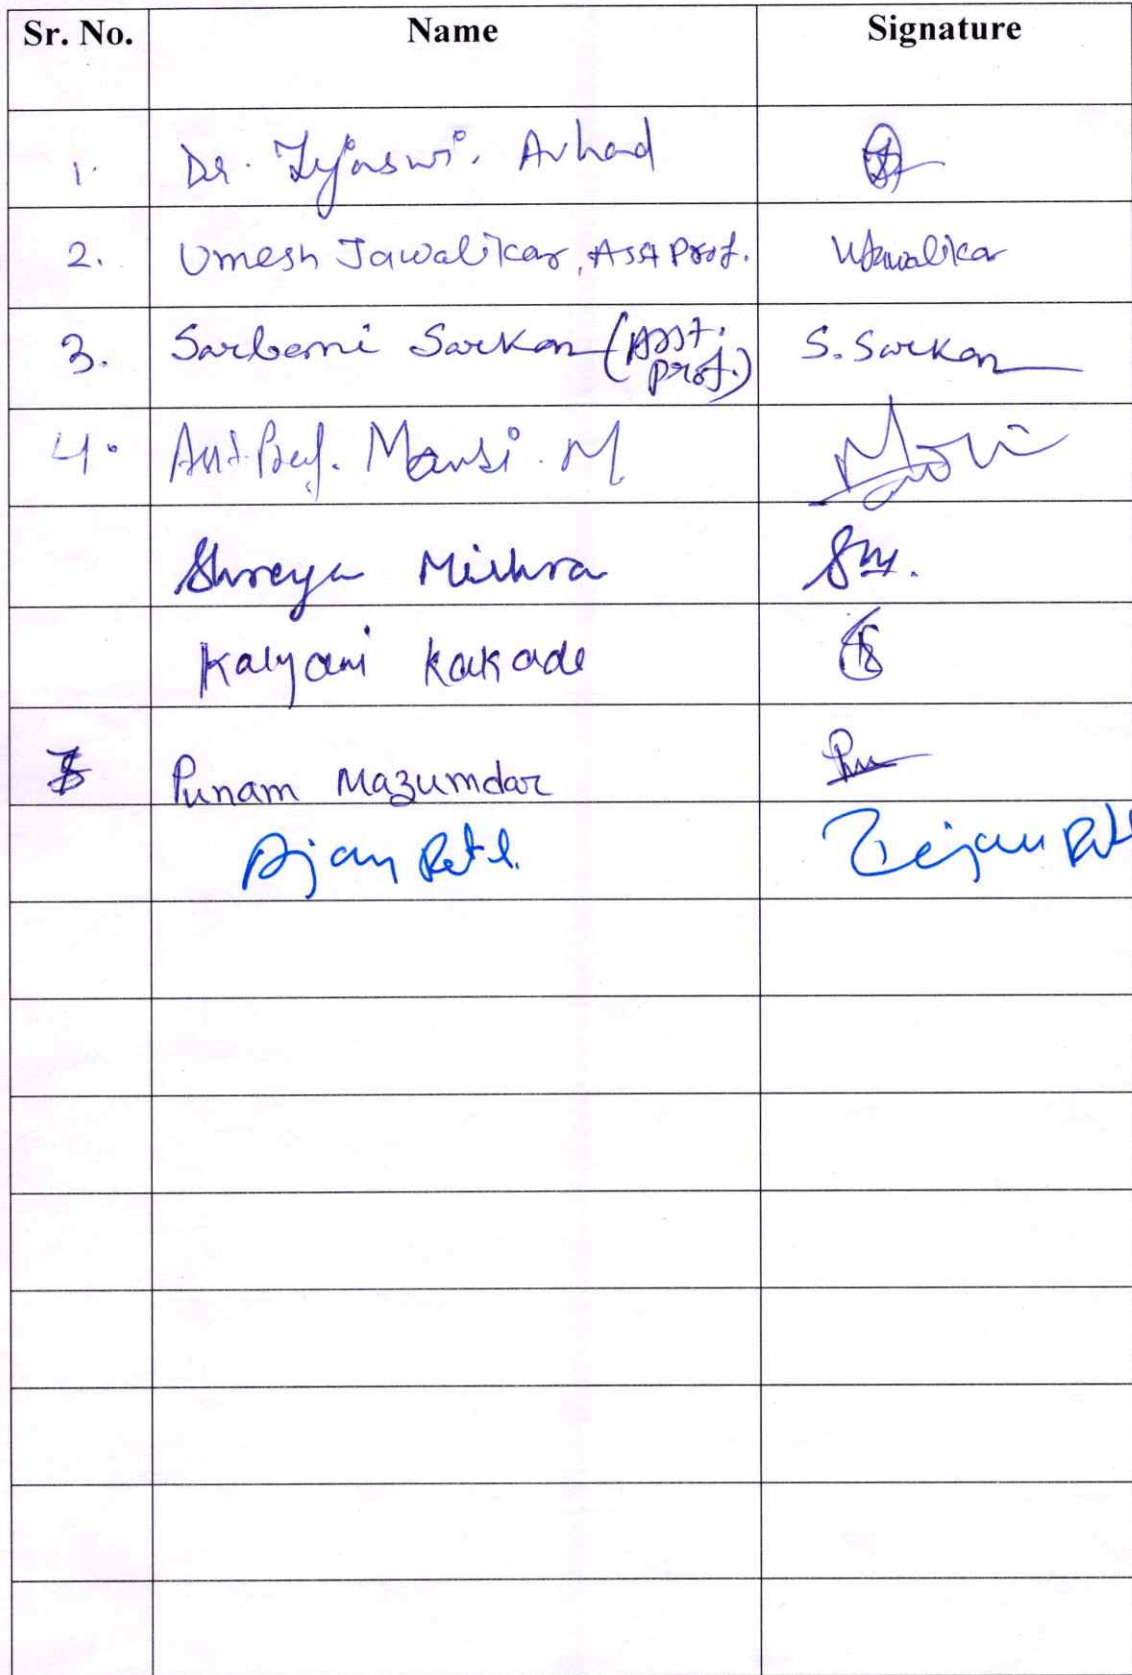 Sr. No. Name Signature
1. Dr. Tejaswi. Avhad
2. Umesh Jawalikar, Asst Prof. UJawalikar
3. Sarbani Sarkar (Asst. Prof.) S. Sarkar
4. Asst. Prof. Mansi. M
Shreya Mishra
Kalyani Kakade
Punam Mazumdar